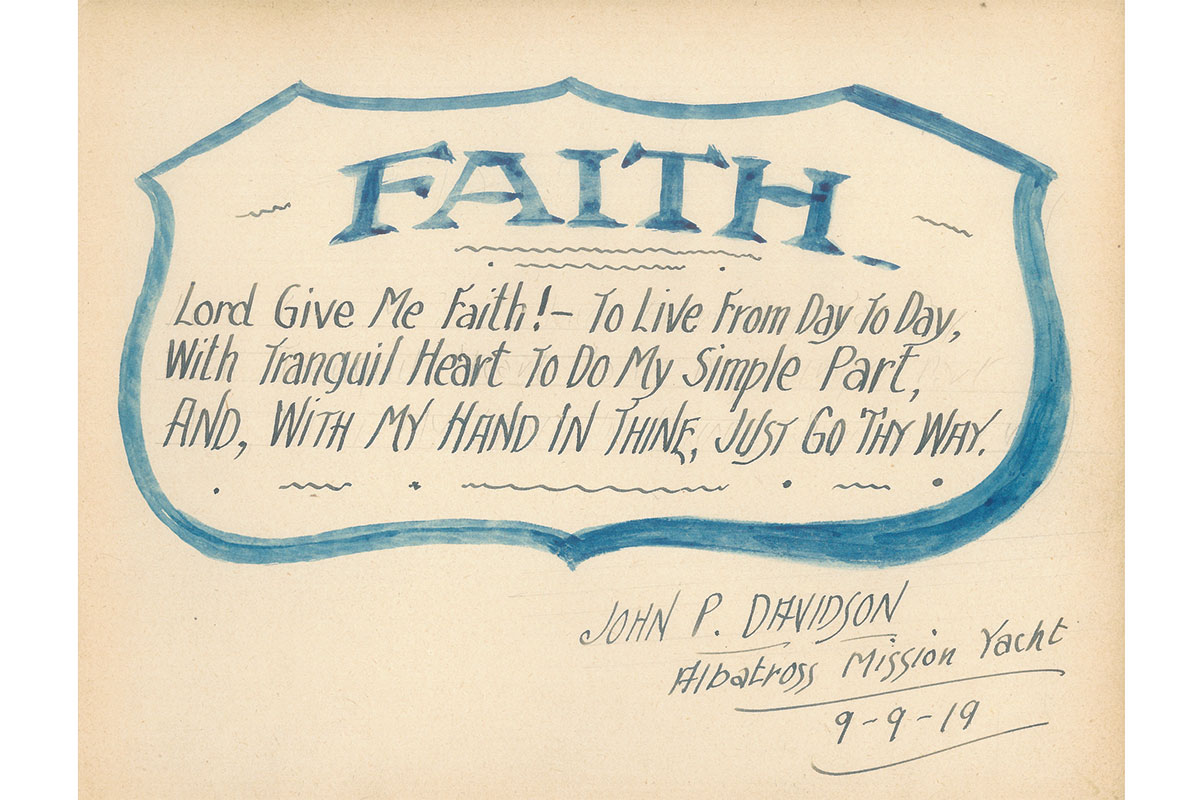 FAITH.
Lord Give Me Faith! – To Live From Day To Day,
With Tranquil Heart To Do My Simple Part,
AND, WITH MY HAND IN THINE, JUST GO THY WAY.
JOHN P. DAVIDSON
Albatross Mission Yacht
9-9-19